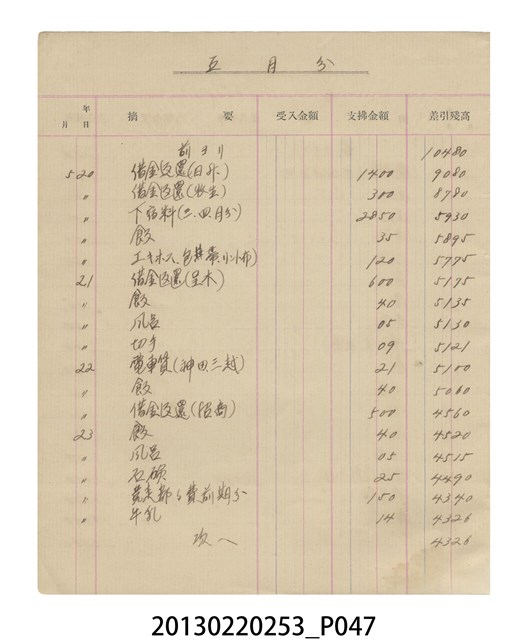 五月分
年 月 日 摘 要 受入金額 支拂金額 差引残高
前ヨリ 10480
5 20 借金返還(日外) 1400 9080
〃 借金返還(牧生) 300 8780
〃 下宿料(三、四月分) 2850 5930
〃 飯 35 5895
〃 エキホス、包帯、リント布) 120 5775
21 借金返還(呈木) 600 5175
〃 飯 40 5135
〃 風呂 05 5130
〃 切手 09 5121
22 電車賃(神田三越) 21 5100
〃 飯 40 5060
〃 借金返還( ) 500 4560
23 飯 40 4520
〃 風呂 05 4515
〃 石鹸 25 4490
〃 費前期分 150 4340
〃 牛乳 14 4326
次へ 4326
20130220253_P047